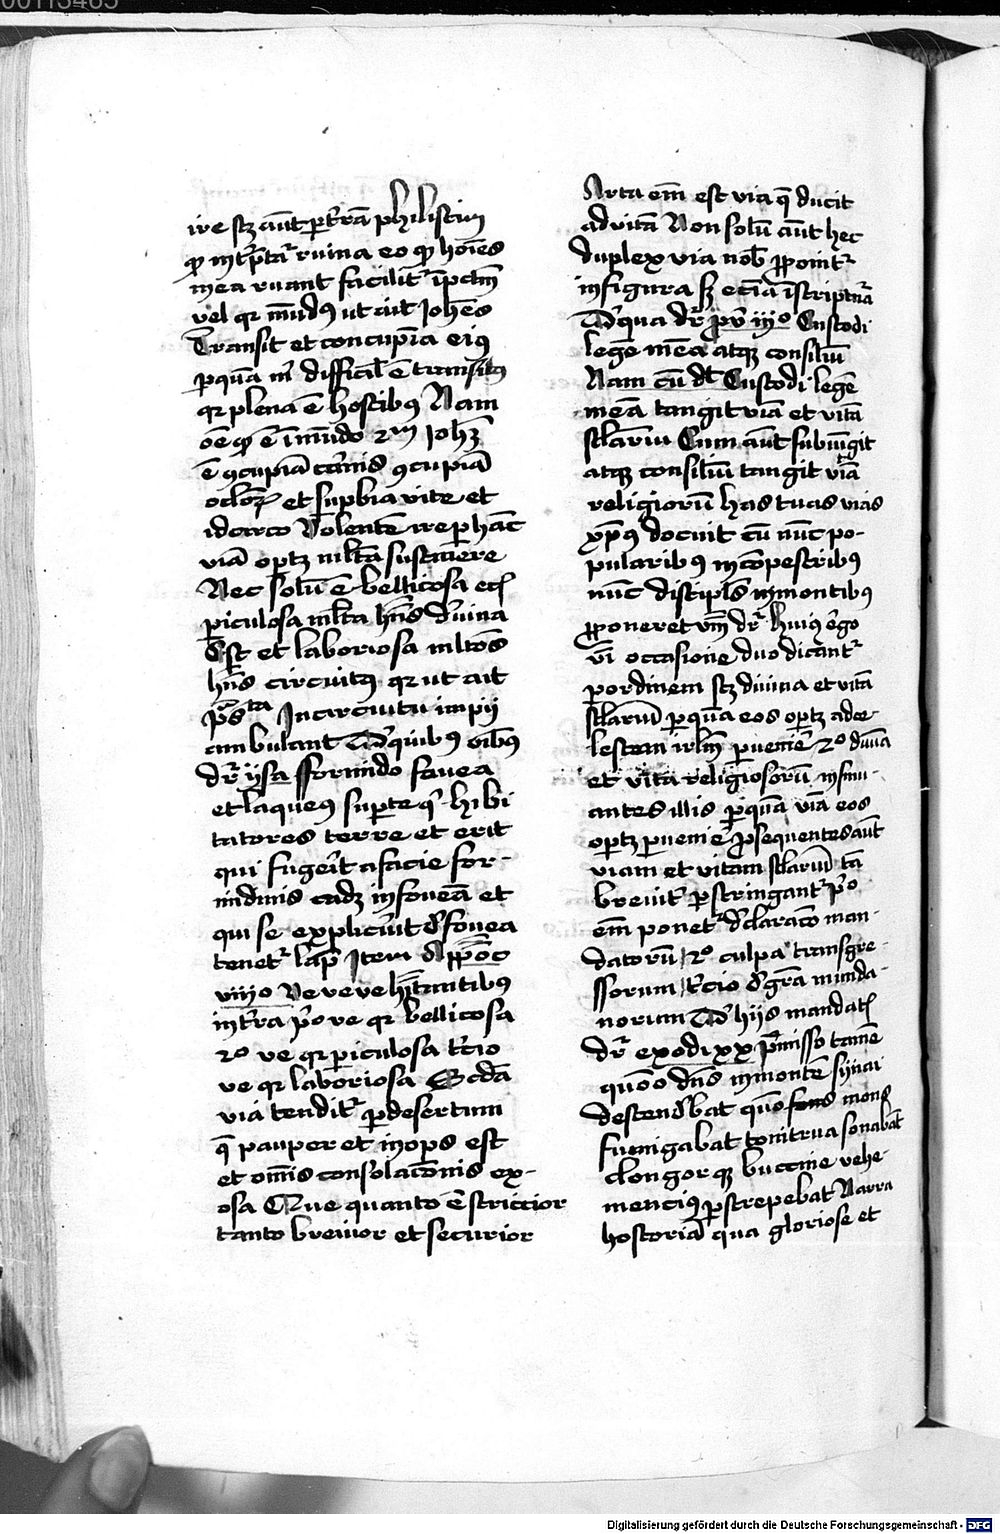 00113485
ire scꝫ aūt ꝑ t̄rā philistiim
qꝫ int̄p̄tat᷑ ruina eo ꝙ hoīes
in ea ruant facilit᷑ ī pctm̄
vel qꝛ mūdꝰ ut ait Joh̄es
Transit et concupīa eiꝰ
ꝑ quā nī difficil̄ ē transitꝰ
qꝛ plena ē hostibꝰ Nam
oē qd̄ ē ī mūdo Joh̄
ē ꝯcupīa carnis ꝯcupīa
oclōꝝ et suꝑbia vite et
idcirco Volentē ire ꝑ hāc
viā oportꝫ mltā sustinēre
Nec solū ē bellicosa ecꝫ
ꝑiculosa mlta hn̄s d̄uina
Est et laboriosa mltōs
hn̄s circuitꝰ qꝛ ut ait
p̄s ta In circuitu impij
ambulant De quibꝰ oībꝰ
dr̄ ysa fformido fouea
et laqueꝰ super te qͥ hībi
tatores terre et erit
qui fugerīt a facie for-
midinis cadꝫ in foueā et
qui se explicūit de fouea
tenet᷑ laꝫ Item Appōc
viijo Ve ve ve hītantibꝰ
in t̄ra p̄o ve qꝛ bellicosa
2o ve qꝛ ꝑiculosa t̄cio
ve qꝛ laboriosa Scd̄a
via tendit᷑ ꝑ desertum
q̄ pauper et inops est
et om̄is consolac̄onis ex-
osa Que quanto ē strictior
tanto breuior et securior
Arta em̄ est via q̄ ducit
ad vitā Non solū aūt hec
duplex via nob̄ ꝓponit᷑
in figura sꝫ ecīa ī scriptura
De qua dr̄ pv̄ iijo Custodi
legē meā atqꝫ consiliū
Nam cū dt̄ Custodi legē
meā tangit viā et vitā
sclariū Cum aūt subiūgit
atqꝫ consiliū tangit viā
religiorū has tuas vias
xp̄ꝰ docuit cū nūc po-
pularibꝰ in cāpestribꝰ
nūc discipl̄s in montibꝰ
ꝓponeret vn̄ dr̄ huiꝰ ergo
vn̄ occasione duo dicant᷑
ꝑ ordinem scꝫ diuina et vitā
sclariū ꝑ quā eos oportꝫ ad ce-
lestem irl̄m ꝑuenire 2o
et vitā religiosorū insinu-
antes illis ꝑ quā viā eos
oportꝫ ꝑuenire ꝓsequentes aūt
viam et vitam sclariū tā
breuit᷑ ꝑstringant᷑ p̄o
em̄ ponet᷑ d̄claraco man-
datorū 2o culpa transgre-
ssorum t̄cio de gr̄a munda-
norum De hijs mandatꝫ
dr̄ exodi xx p̄misso tamē
quōo dn̄s in monte synai
descendebat quōo mons
fumigabat tonitrua sonabāt
clangorqꝫ buccine vehe-
menciꝰ ꝑstrepebat Narra
hostoriā qua gloriose et
Digitalisierung gefördert durch die Deutsche Forschungsgemeinschaft - DFG